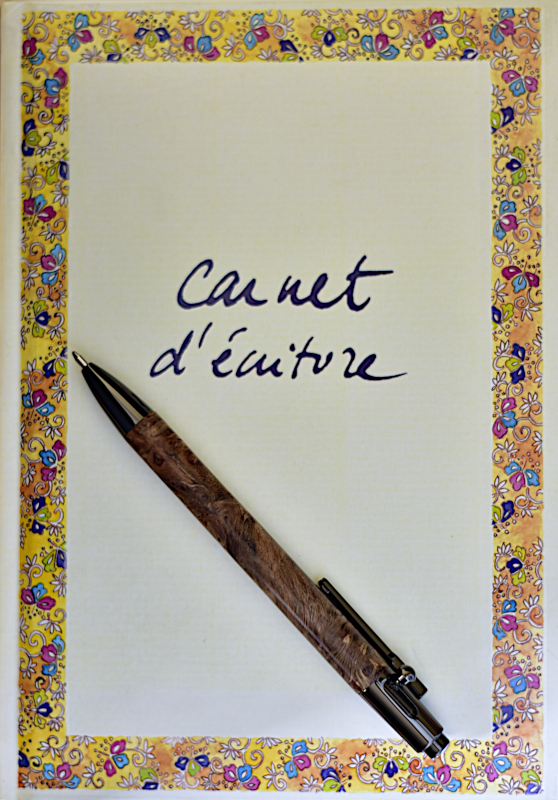 Carnet
d'écriture